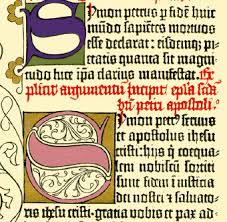 Symon petrus p fidē huic
mūdo sapiētes mortuos
esse declarat: eisdemq; pi-
etatis quanta sit magni-
tudo hic ip̄a claris manifestat. Ex-
plicit argumentū Incipit epl̄a scd̄a
btī petri apostoli.
Symon petrus servus
et apostolus ihesu
cristi: hijs q̄ coequa-
lem nobiscū sortiti
sunt fidem ī iusticia
dei nostri et salvato-
ris ihesu cristi. gratia vobis et pax ad-